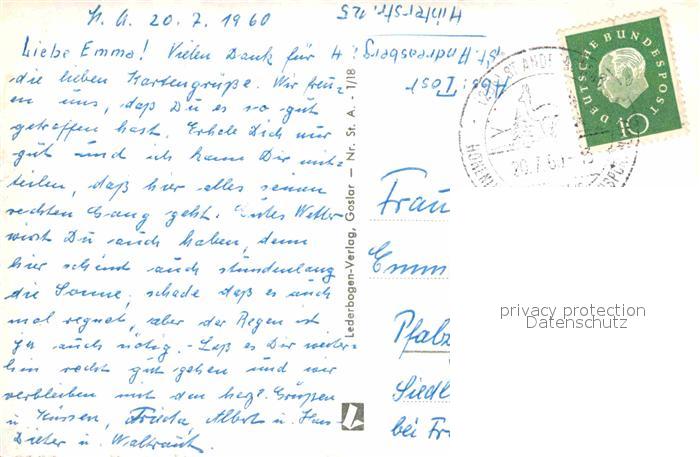 St. A. 20.7.1960
Liebe Emma! Vielen Dank für
die lieben Kartengrüße. Wir freu-
en uns, daß Du es so gut
getroffen hast. Erhole Dich nur
gut und ich kann Dir mit-
teilen, daß hier alles seinen
rechten Gang geht. Gutes Wetter
wirst Du auch haben, denn
hier scheint auch stundenlang
die Sonne, schade daß es auch
mal regnet, aber der Regen ist
ja auch nötig. - Laß es Dir weiter-
hin recht gut gehen und wir
verbleiben mit den herzl. Grüßen
u. Küssen, Frieda, Albert u. Hans-
Dieter u. Waltraut.
Abs: Tost
St. Andreasberg
Hinterstr. 125
Lederbogen-Verlag, Goslar — Nr. St. A. - 1/18
DEUTSCHE BUNDESPOST
10
ST. ANDREASBERG
20.7.60
Frau
Emm
Pfalz
Siedl
bei Fr
privacy protection
Datenschutz